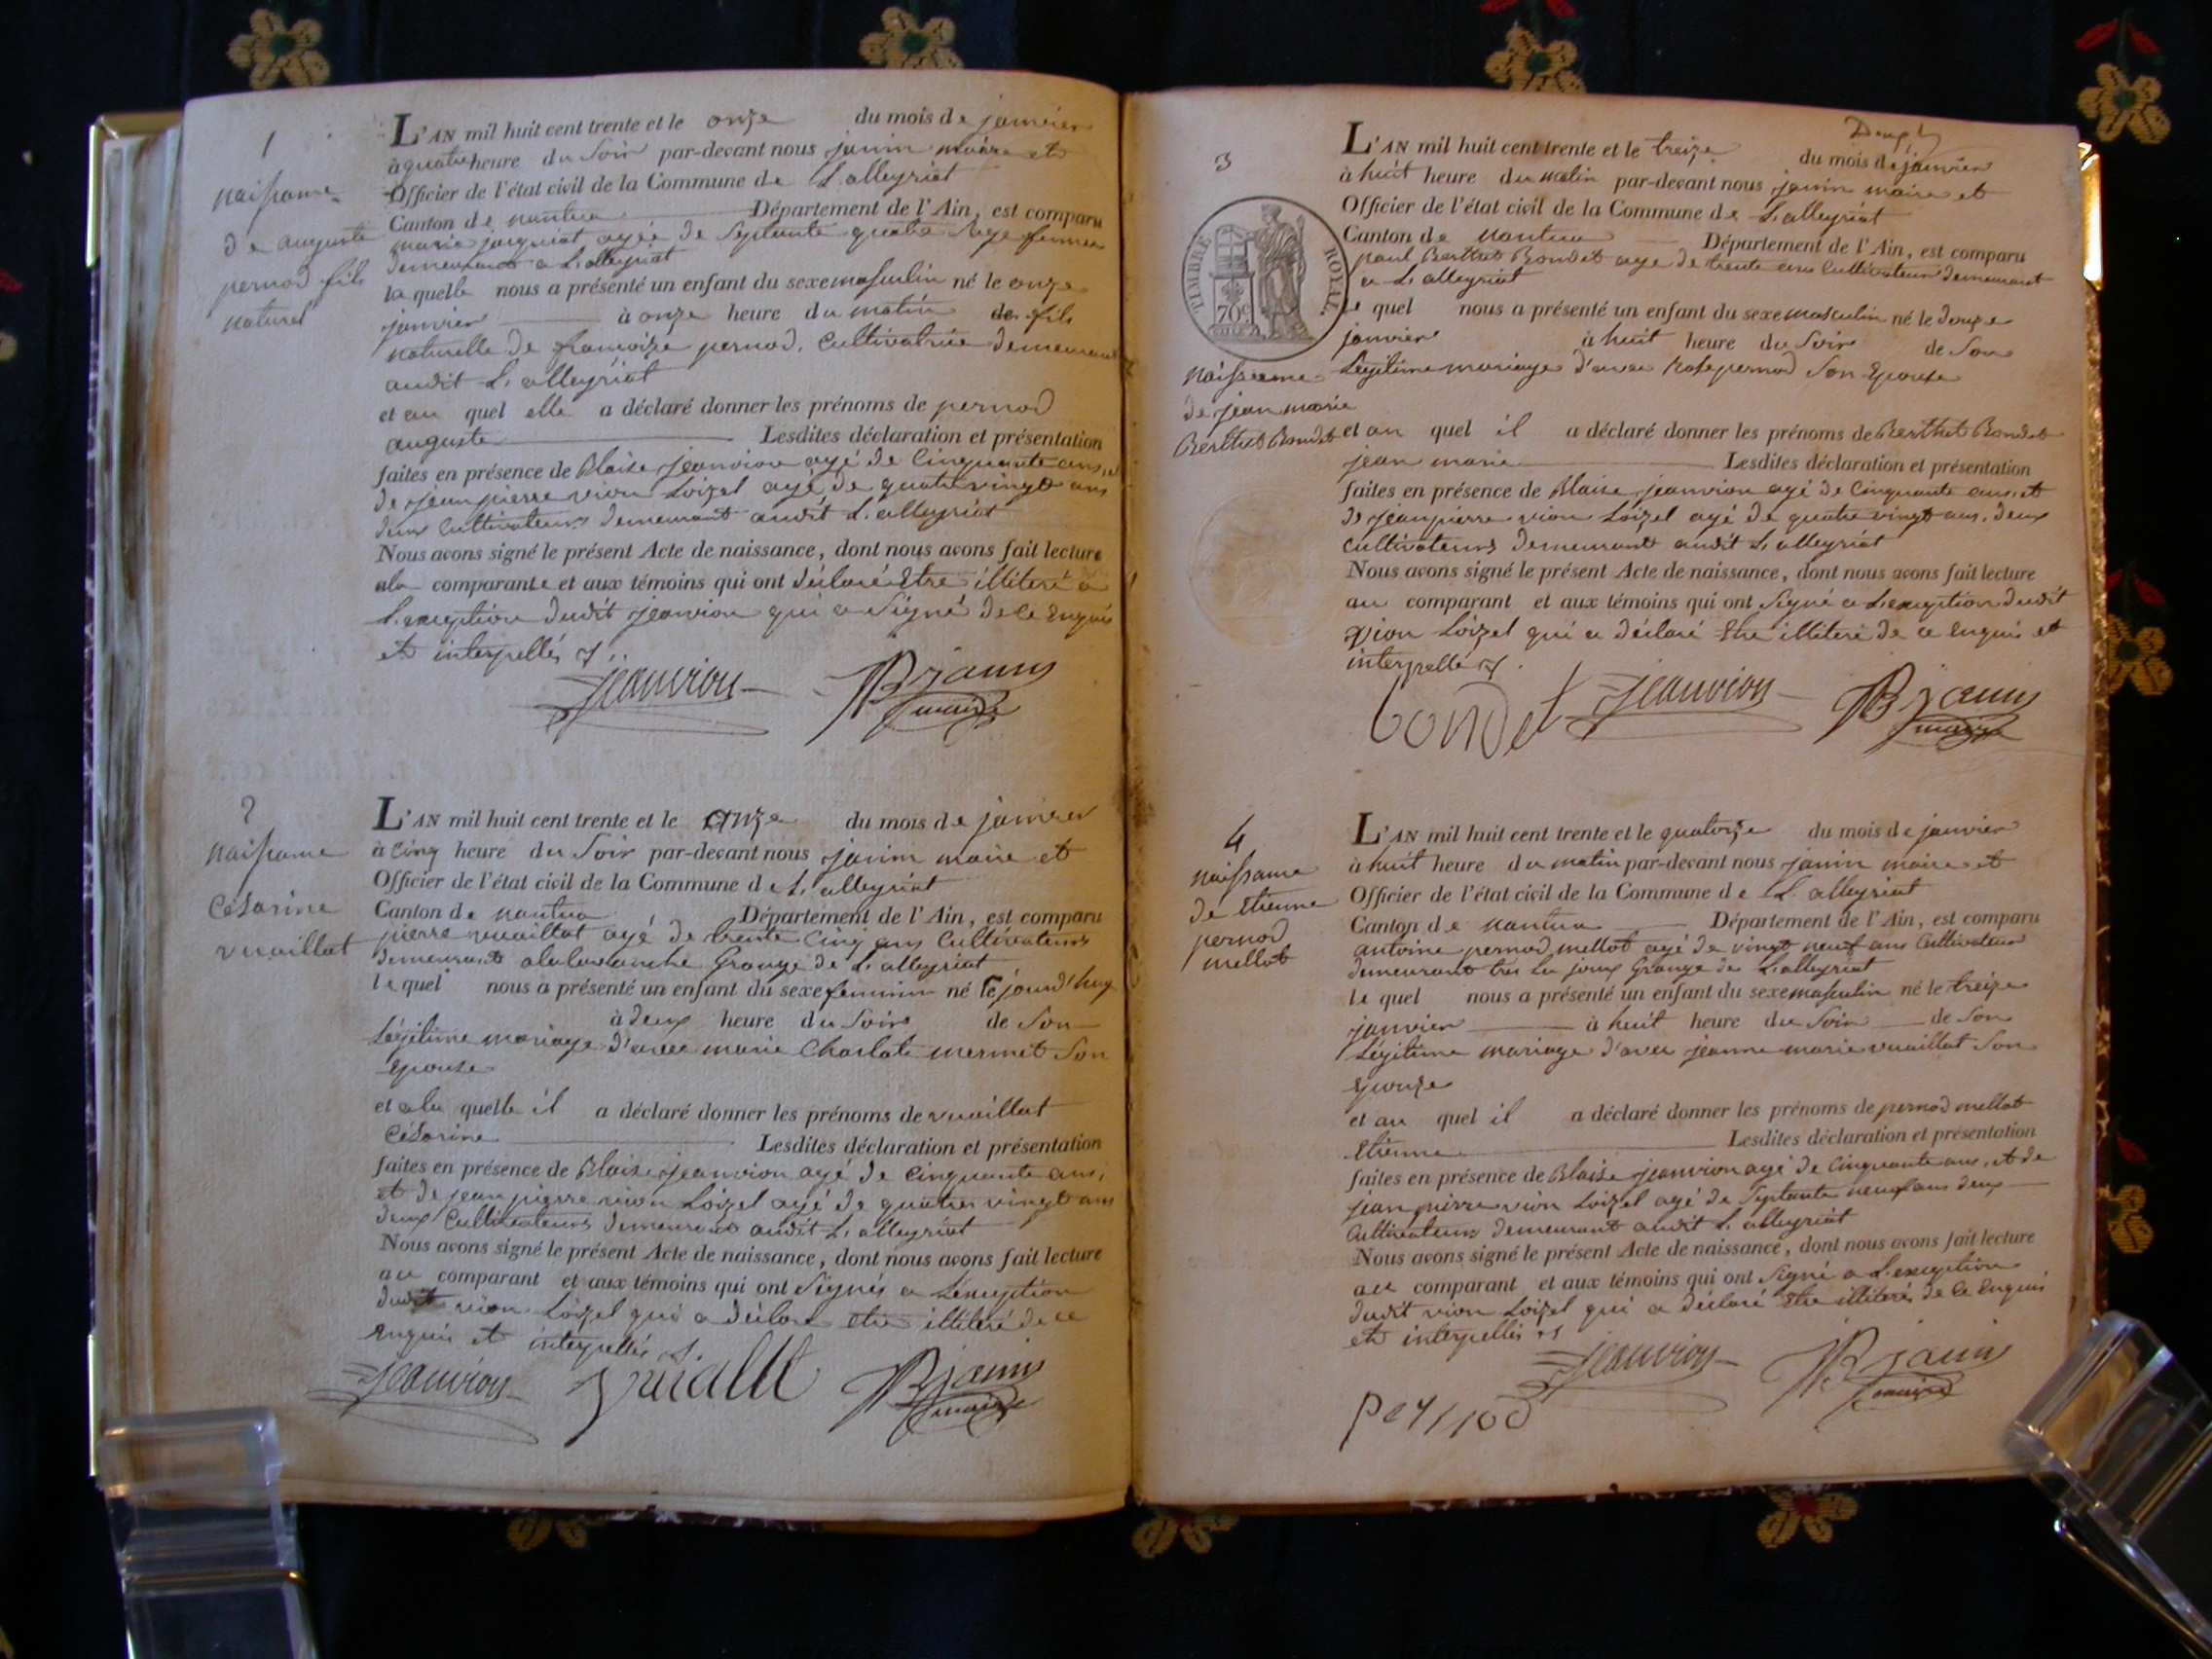 1
naissance
de auguste
pernod fils
naturel
L'AN mil huit cent trente et le onze du mois de janvier
à quatre heure du soir par-devant nous janin maire et
Officier de l'état civil de la Commune de L'alleyriat
Canton de nantua Département de l'Ain, est comparu
marie jacquiot agée de septante quatre sage femme
demeurant a L'alleyriat
la quelle nous a présenté un enfant du sexe masculin né le onze
janvier à onze heure du matin de fils
naturelle de francoise pernod, cultivatrice demeurant
audit L'alleyriat
et au quel elle a déclaré donner les prénoms de pernod
auguste Lesdites déclaration et présentation
faites en présence de Blaise jeanvion agé de cinquante ans, et
de jean pierre vion Loizel agé de quatre vingt ans
deux cultivateurs demeurant audit L'alleyriat
Nous avons signé le présent Acte de naissance, dont nous avons fait lecture
a la comparante et aux témoins qui ont déclaré Etre illiteré a
L'exception dudit jeanvion qui a signé de ce Enquis
et interpellés
jeanvion JB janin
maire
2
naissance
Césarine
vuaillat
L'AN mil huit cent trente et le onze du mois de janvier
à cinq heure du soir par-devant nous janin maire et
Officier de l'état civil de la Commune de L'alleyriat
Canton de nantua Département de l'Ain, est comparu
pierre vuaillat agé de trente cinq ans cultivateur
demeurant a la Grange de L'alleyriat
le quel nous a présenté un enfant du sexe feminin né le jourd'huy
à deux heure du soir de son
Légitime mariage d'avec marie Charlote mermet son
Epouse
et a la quelle il a déclaré donner les prénoms de vuaillat
Césarine Lesdites déclaration et présentation
faites en présence de Blaise jeanvion agé de cinquante ans,
et de jean pierre vion Loizel agé de quatre vingt ans
deux cultivateurs demeurant audit L'alleyriat
Nous avons signé le présent Acte de naissance, dont nous avons fait lecture
au comparant et aux témoins qui ont signés a L'exception
dudit vion Loizel qui a déclaré etre illiteré de ce
enquis et interpellés
jeanvion JB janin
maire
3
TIMBRE ROYAL
70c
naissance
de jean marie
Berthet Bondet
L'AN mil huit cent trente et le treize du mois de janvier
à huit heure du matin par-devant nous janin maire et
Officier de l'état civil de la Commune de L'alleyriat
Canton de nantua Département de l'Ain, est comparu
paul Berthet Bondet agé de trente ans cultivateur demeurant
a L'alleyriat
le quel nous a présenté un enfant du sexe masculin né le douze
janvier à huit heure du soir de son
Légitime mariage d'avec Rose pernod son Epouse
et au quel il a déclaré donner les prénoms de Berthet Bondet
jean marie Lesdites déclaration et présentation
faites en présence de Blaise jeanvion agé de cinquante ans, et
de jean pierre vion Loizel agé de quatre vingt ans, deux
cultivateurs demeurant audit L'alleyriat
Nous avons signé le présent Acte de naissance, dont nous avons fait lecture
au comparant et aux témoins qui ont signé a L'exception dudit
vion Loizel qui a déclaré Etre illiteré de ce enquis et
interpellé
bondet jeanvion JB janin
maire
4
naissance
de Etienne
pernod
mellot
L'AN mil huit cent trente et le quatorze du mois de janvier
à huit heure du matin par-devant nous janin maire et
Officier de l'état civil de la Commune de L'alleyriat
Canton de nantua Département de l'Ain, est comparu
antoine pernod mellot agé de vingt neuf ans cultivateur
demeurant Grange de L'alleyriat
le quel nous a présenté un enfant du sexe masculin né le treize
janvier à huit heure du soir de son
Légitime mariage d'avec jeanne marie vuaillat son
Epouze
et au quel il a déclaré donner les prénoms de pernod mellot
Etienne Lesdites déclaration et présentation
faites en présence de Blaise jeanvion agé de cinquante ans, et de
jean pierre vion Loizel agé de septante neuf ans deux
cultivateurs demeurant audit L'alleyriat
Nous avons signé le présent Acte de naissance, dont nous avons fait lecture
au comparant et aux témoins qui ont signé a L'exception
dudit vion Loizel qui a déclaré Etre illiteré de ce Enquis
et interpellés
jeanvion JB janin
maire
pernod